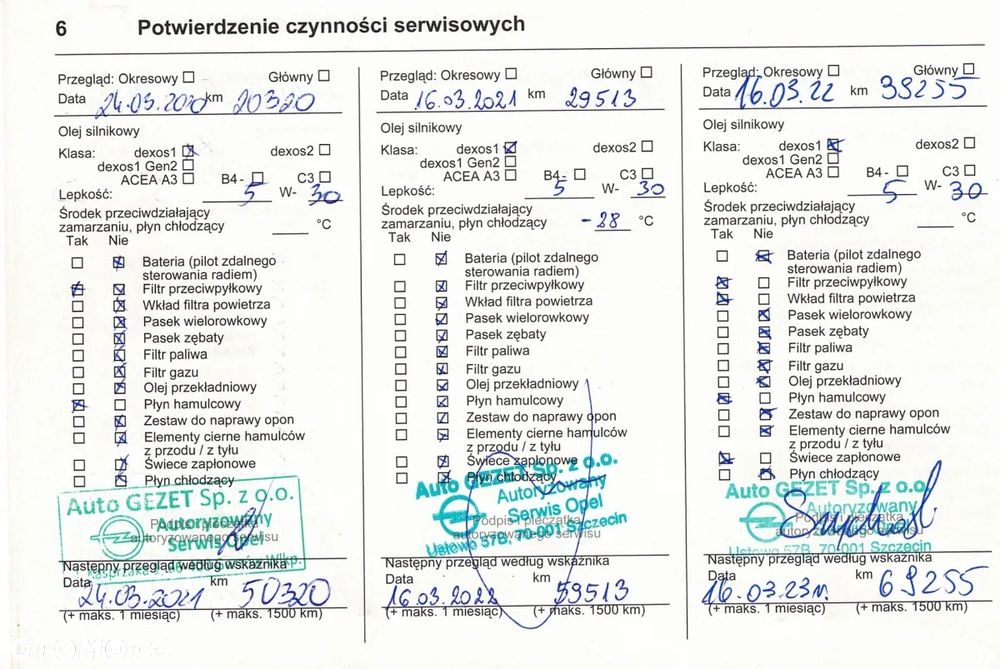 6 Potwierdzenie czynności serwisowych
Przegląd: Okresowy Główny
Data 24.03.2020 km 20320
Olej silnikowy
Klasa: dexos1 dexos2
dexos1 Gen2
ACEA A3 B4- C3
Lepkość: 5 W- 30
Środek przeciwdziałający
zamarzaniu, płyn chłodzący °C
Tak Nie
Bateria (pilot zdalnego
sterowania radiem)
Filtr przeciwpyłkowy
Wkład filtra powietrza
Pasek wielorowkowy
Pasek zębaty
Filtr paliwa
Filtr gazu
Olej przekładniowy
Płyn hamulcowy
Zestaw do naprawy opon
Elementy cierne hamulców
z przodu / z tyłu
Świece zapłonowe
Płyn chłodzący
Auto GEZET Sp. z o.o.
Autoryzowany
Serwis Opel
Podpis i pieczątka
autoryzowanego serwisu
Następny przegląd według wskaźnika
Data km
24.03.2021 50320
(+ maks. 1 miesiąc) (+ maks. 1500 km)
Przegląd: Okresowy Główny
Data 16.03.2021 km 29513
Olej silnikowy
Klasa: dexos1 dexos2
dexos1 Gen2
ACEA A3 B4- C3
Lepkość: 5 W- 30
Środek przeciwdziałający
zamarzaniu, płyn chłodzący -28 °C
Tak Nie
Bateria (pilot zdalnego
sterowania radiem)
Filtr przeciwpyłkowy
Wkład filtra powietrza
Pasek wielorowkowy
Pasek zębaty
Filtr paliwa
Filtr gazu
Olej przekładniowy
Płyn hamulcowy
Zestaw do naprawy opon
Elementy cierne hamulców
z przodu / z tyłu
Świece zapłonowe
Płyn chłodzący
Auto GEZET Sp. z o.o.
Autoryzowany
Serwis Opel
Ustowo 57B, 70-001 Szczecin
Podpis i pieczątka
autoryzowanego serwisu
Następny przegląd według wskaźnika
Data km
16.03.2022 59513
(+ maks. 1 miesiąc) (+ maks. 1500 km)
Przegląd: Okresowy Główny
Data 16.03.22 km 39255
Olej silnikowy
Klasa: dexos1 dexos2
dexos1 Gen2
ACEA A3 B4- C3
Lepkość: 5 W- 30
Środek przeciwdziałający
zamarzaniu, płyn chłodzący °C
Tak Nie
Bateria (pilot zdalnego
sterowania radiem)
Filtr przeciwpyłkowy
Wkład filtra powietrza
Pasek wielorowkowy
Pasek zębaty
Filtr paliwa
Filtr gazu
Olej przekładniowy
Płyn hamulcowy
Zestaw do naprawy opon
Elementy cierne hamulców
z przodu / z tyłu
Świece zapłonowe
Płyn chłodzący
Auto GEZET Sp. z o.o.
Autoryzowany
Serwis Opel
Ustowo 57B, 70-001 Szczecin
Podpis i pieczątka
autoryzowanego serwisu
Następny przegląd według wskaźnika
Data km
16.03.23r. 69255
(+ maks. 1 miesiąc) (+ maks. 1500 km)
OTOMOTO